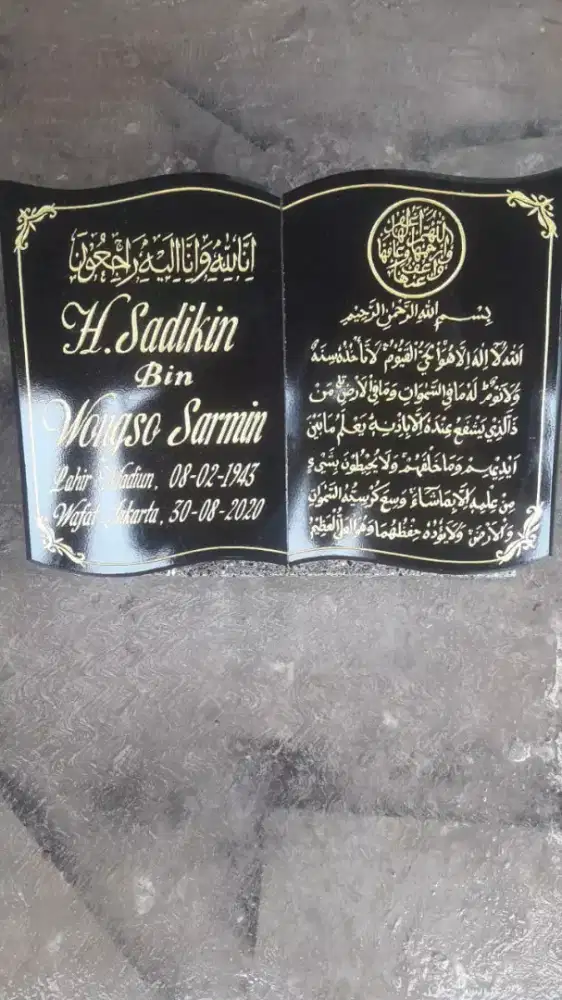 انا لله وانا اليه راجعون
H. Sadikin
Bin
Wongso Sarmin
Lahir Madiun, 08-02-1943
Wafat Jakarta, 30-08-2020
اللهم اغفر لها وارحمها وعافها واعف عنها
بِسْمِ اللهِ الرَّحْمٰنِ الرَّحِيْمِ
اَللهُ لَا اِلٰهَ اِلَّا هُوَ الْحَيُّ الْقَيُّوْمُ لَا تَأْخُذُهُ سِنَةٌ
وَلَا نَوْمٌ لَهُ مَا فِي السَّمٰوَاتِ وَمَا فِي الْاَرْضِ مَنْ
ذَالَّذِيْ يَشْفَعُ عِنْدَهُ اِلَّا بِاِذْنِهِ يَعْلَمُ مَا بَيْنَ
اَيْدِيْهِمْ وَمَا خَلْفَهُمْ وَلَا يُحِيْطُوْنَ بِشَيْءٍ
مِنْ عِلْمِهِ اِلَّا بِمَا شَاءَ وَسِعَ كُرْسِيُّهُ السَّمٰوَاتِ
وَالْاَرْضَ وَلَا يَؤُدُهُ حِفْظُهُمَا وَهُوَ الْعَلِيُّ الْعَظِيْمُ